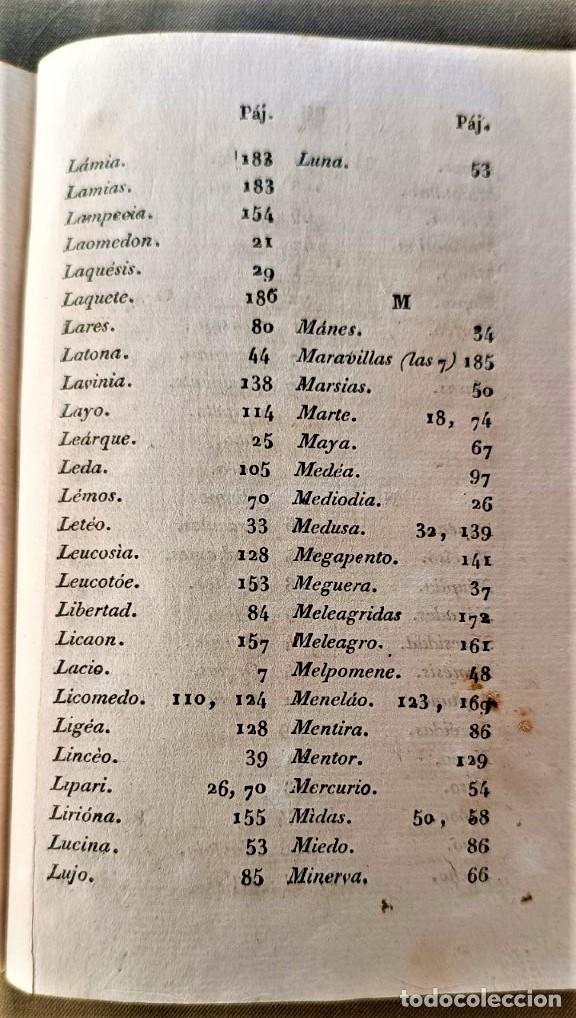 Páj.
Lámia. 183
Lamias. 183
Lampecia. 154
Laomedon. 21
Laquésis. 29
Laquete. 186
Lares. 80
Latona. 44
Lavinia. 138
Layo. 114
Leárque. 25
Leda. 105
Lémos. 70
Letéo. 33
Leucosìa. 128
Leucotóe. 153
Libertad. 84
Licaon. 157
Lacio. 7
Licomedo. 110, 124
Ligéa. 128
Lincèo. 39
Lipari. 26, 70
Lirióna. 155
Lucina. 53
Lujo. 85
Páj.
Luna. 53
M
Mánes. 34
Maravillas (las 7) 185
Marsias. 50
Marte. 18, 74
Maya. 67
Medéa. 97
Mediodia. 26
Medusa. 32, 139
Megapento. 141
Meguera. 37
Meleagridas 172
Meleagro. 161
Melpomene. 48
Meneláo. 123, 169
Mentira. 86
Mentor. 129
Mercurio. 54
Mìdas. 50, 58
Miedo. 86
Minerva. 66
todocoleccion